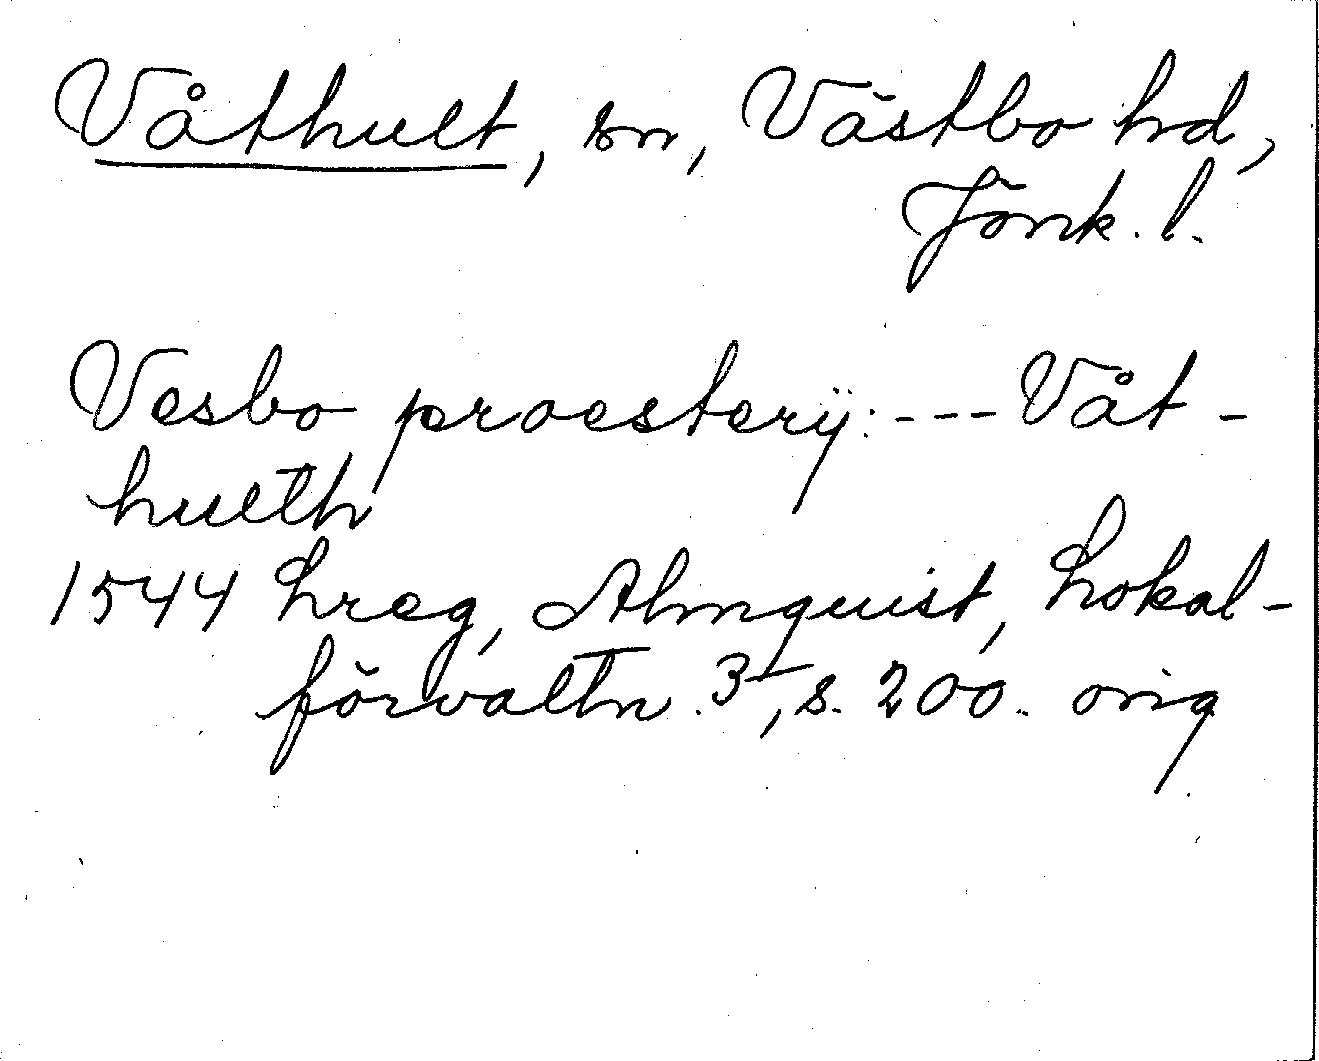 Våthult, sn, Västbo hd,
Jönk. l.
Vesbo proesterÿ: --- Våt-
hulth
1544 Lreg, Almquist, Lokal-
förvaltn. 3, s. 200. orig